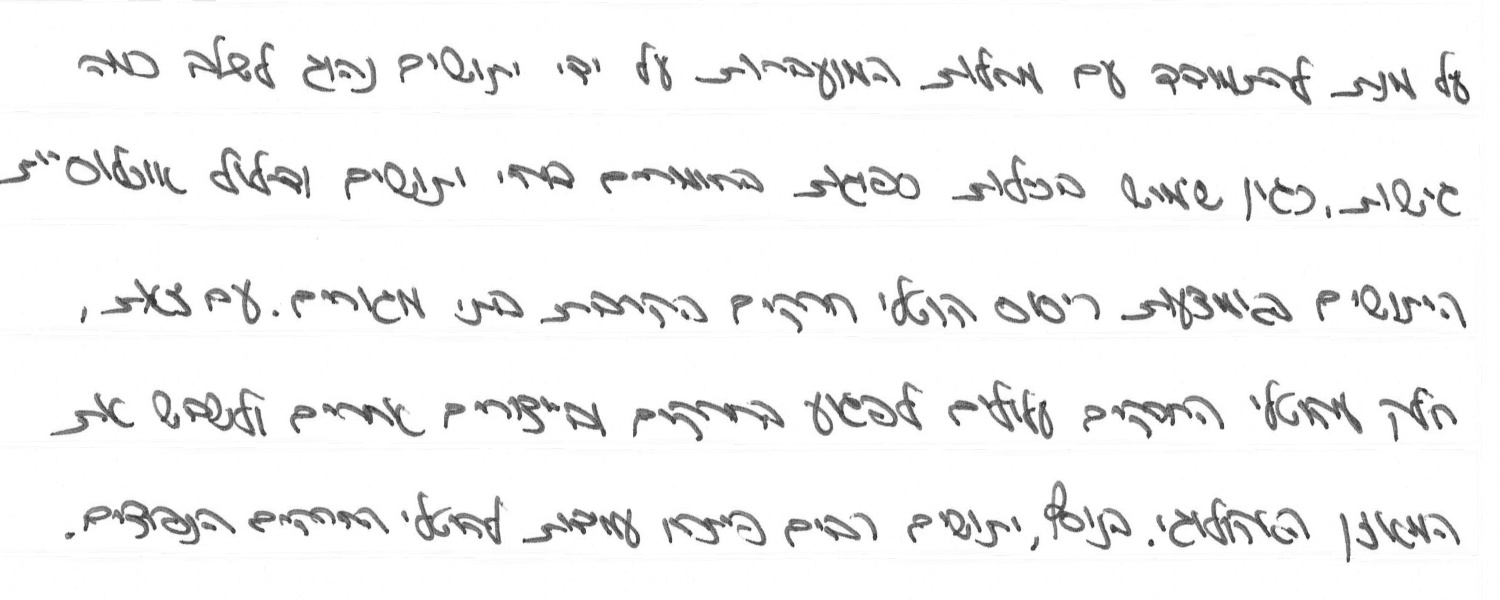 על מנת להתמודד עם מחלות המועברות על ידי יתושים נהוג לשלב כמה
גישות, כגון שימוש בכילות ספוגות בחומרים דוחי יתושים ודילול אוכלוסיית
היתושים באמצעות ריסוס קוטלי חרקים בקרבת בתי מגורים. עם זאת,
חלק מקוטלי החרקים עלולים לפגוע בחרקים ובייצורים אחרים ולשבש את
המאזן האקולוגי. בנוסף, יתושים רבים פיתחו עמידות לקוטלי החרקים הנפוצים.